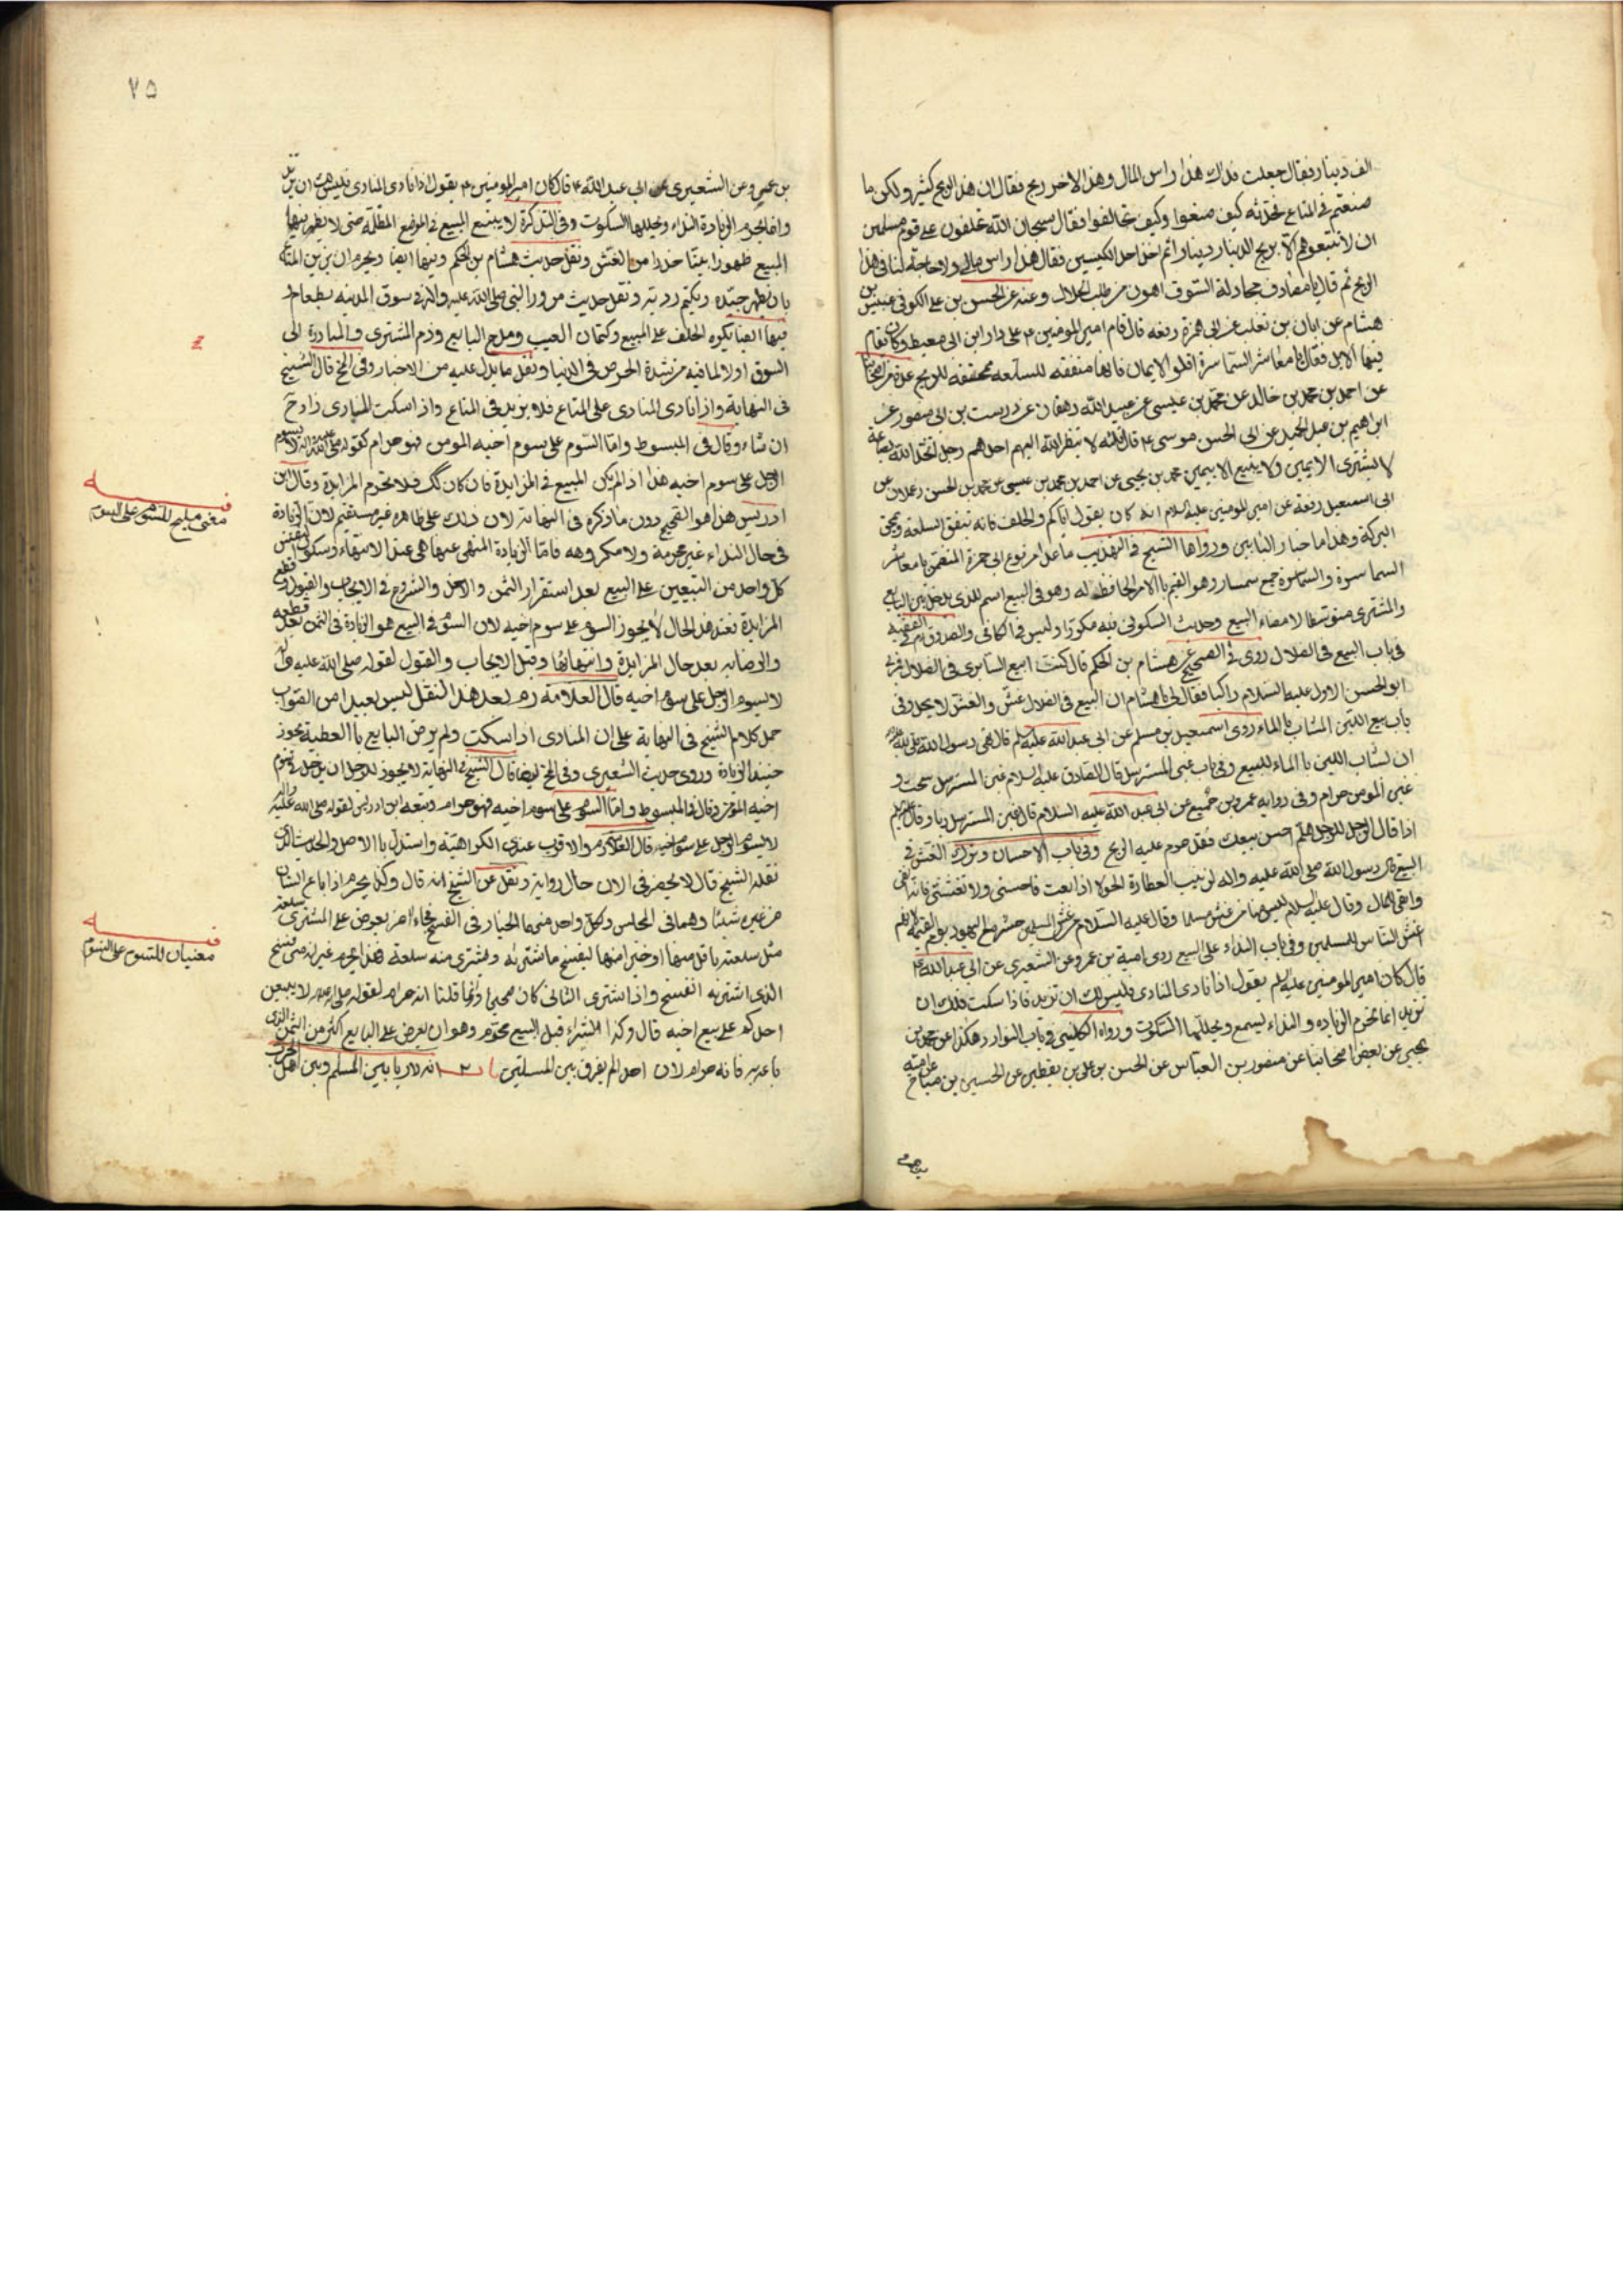 الف دينار فقال جعلت فداك هذا راس المال وهذا الاخر ربح فقال ان هذا الربح كثير ولكن ما
صنعتم في المتاع فحدثه كيف صنعوا وكيف تحالفوا فقال سبحان الله تحلفون على قوم مسلمين
ان لا تبيعوهم الا بربح الدينار دينارا ثم اخذ احد الكيسين فقال هذا راس مالي ولا حاجة لنا في هذا
الربح ثم قال يا مصادف مجادلة السيوف اهون من طلب الحلال وعنه عن الحسن بن علي الكوفي عن عبيس بن
هشام عن ابان بن تغلب عن ابي حمزة رفعه قال قام امير المومنين ع على دار ابن ابي معيط وكان تقام
فيها الابل فقال يا معاشر السماسرة اقلوا الايمان فانها منفقة للسلعة ممحقة للربح
عن احمد بن محمد بن خالد عن محمد بن عيسى عن عبيد الله دهقان عن درست بن ابي منصور عن
ابراهيم بن عبد الحميد عن ابي الحسن موسى ع قال ثلثة لا ينظر الله اليهم احدهم رجل اتخذ الله بضاعة
لا يشترى الا بيمين ولا يبيع الا بيمين محمد بن يحيى عن احمد بن محمد بن عيسى عن محمد بن الحسن زعلان عن
ابي اسمعيل رفعه عن امير المومنين عليه السلام انه كان يقول اياكم والحلف فانه ينفق السلعة ويمحق
البركة وهذا ما حبار الباب ورواها الشيخ في التهذيب ما عدا مرفوع ابي حمزة المتضمن يا معاشر
السماسرة والسماسرة جمع سمسار وهو القيم بالامر الحافظ له وهو في البيع اسم للذي يدخل بين البايع
والمشترى متوسطا لامضاء البيع وحديث السكوني فيه مكررا وليس في الكافي والصدوق في الفقيه
في باب البيع في الظلال روى في الصحيح عن هشام بن الحكم قال كنت ابيع السابري في الظلال فمر بي
ابو الحسن الاول عليه السلام راكبا فقال لي يا هشام ان البيع في الظلال غش والغش لا يحل وفي
باب بيع اللبن المشاب بالماء روى اسمعيل بن مسلم عن ابي عبد الله عليه السلم قال نهى رسول الله صلى الله عليه
ان يشاب اللبن بالماء للبيع وفي باب غبن المسترسل قال الصادق عليه السلام غبن المسترسل سحت و
غبن المومن حرام وفي رواية عمرو بن جميع عن ابي عبد الله عليه السلام قال غبن المسترسل ربا وقال عليه السلم
اذا قال الرجل للرجل هلم احسن بيعك فقد حرم عليه الربح وفي باب الاحسان وترك الغش في
البيع قال رسول الله صلى الله عليه واله لزينب العطارة الحولا اذا بعت فاحسني ولا تغشي فانه اتقى
وابقى للمال وقال عليه السلام ليس منا من غش مسلما وقال عليه السلام من غش المسلمين حشر مع اليهود يوم القيمة لانهم
اغش الناس للمسلمين وفي باب النداء على البيع روى امية بن عمرو عن الشعيري عن ابي عبد الله ع
قال كان امير المومنين عليه السلم يقول اذا نادى المنادى فليس لك ان تزيد فاذا سكت فلك ان
تزيد انما تحرم الزيادة والنداء يسمع ويحللها السكوت ورواه الكليني في باب النوادر هكذا عن محمد بن
يحيى عن بعض اصحابنا عن منصور بن العباس عن الحسن بن علي بن يقطين عن الحسين بن مياح عن امية
بن عمرو
٧٥
بن عمرو عن الشعيري عن ابي عبد الله ع قال كان امير المومنين ع يقول اذا نادى المنادى فليس لك ان تزيد
وانما يحرم الزيادة النداء ويحللها السكوت وفي التذكرة لا يبيع المبيع في المواضع المظلمة حتى لا يظهر فيها
المبيع ظهورا بينا حذرا من الغش ونقل حديث هشام بن الحكم وفيها ايضا ويحرم ان يزين المتاع
بان يظهر جيده ويكتم رديه ونقل حديث مرور النبي صلى الله عليه واله في سوق المدينة بطعام
فيها ايضا يكره الحلف على المبيع وكتمان العيب ومدح البايع وذم المشترى والمبادرة الى
السوق اولا لما فيه من شدة الحرص في الدنيا ونقل ما يدل عليه من الاخبار وفي المخ قال الشيخ
في النهاية واذا نادى المنادى على المتاع فلا يزيد في المتاع واذا سكت المنادى زاد ح
ان شاء وقال في المبسوط واما السوم على سوم اخيه المومن فهو حرام لقوله صلى الله عليه واله لا يسوم
الرجل على سوم اخيه هذا اذا لم يكن المبيع في المزايدة فان كان كك فلا تحرم المزايدة وقال ابن
ادريس هذا هو الصحيح دون ما ذكره في النهاية لان ذلك على ظاهره غير مستقيم لان الزيادة
في حال النداء غير محرمة ولا مكروهه فاما الزيادة المنهى عنها هي عند الانتهاء وسكون نفس
كل واحد من البيعين على البيع بعد استقرار الثمن والاخذ والشروع في الايجاب والقبول وقطع
المزايدة فعند هذا الحال لا يجوز السوم على سوم اخيه لان السوم في البيع هو الزيادة في الثمن بعد قطعه
والرضا به بعد حال المزايدة وانتهائها وقبل الايجاب والقبول لقوله صلى الله عليه واله
لا يسوم الرجل على سوم اخيه قال العلامة ره بعد هذا النقل ليس بعيدا من الصواب
حمل كلام الشيخ في النهاية على ان المنادى اذا سكت ولم يرض البايع بالعطية يجوز
حينئذ الزيادة وروى حديث الشعيري وفي المخ ايضا قال الشيخ في النهاية لا يجوز للرجل ان يدخل في سوم
اخيه المؤمن وقال في المبسوط واما السوم على سوم اخيه فهو حرام وتبعه ابن ادريس لقوله صلى الله عليه واله
لا يسوم الرجل على سوم اخيه قال العلامة ره والاقرب عندي الكراهية واستدل بالاصل والحديث الذي
نقله الشيخ قال لا يحضرني الان حال روايه ونقل عن الشيخ انه قال وكذا يحرم اذا باع انسان
من غيره شيئا وهما في المجلس ولكل واحد منهما الخيار في الفسخ فجاء اخر يعرض على المشترى سلعة
مثل سلعته باقل منها او خيرا منها ليفسخ ما اشتراه ويشترى منه سلعة هذا يحرم غير انه متى فسخ
الذي اشتريه انفسخ واذا اشترى الثاني كان صحيحا وانما قلنا انه حرام لقوله صلى الله عليه واله لا يبيعن
احدكم على بيع اخيه قال وكذا الشراء قبل البيع محرم وهو ان يعرض على البايع اكثر من الثمن الذي
باعه به فانه حرام لان احدا لم يفرق بين المسلتين باب انه لا ربا بين المسلم وبين اهل الحرب
فيه
معنى مليح للسوم على السوم
فيه
معنيان للسوم على السوم